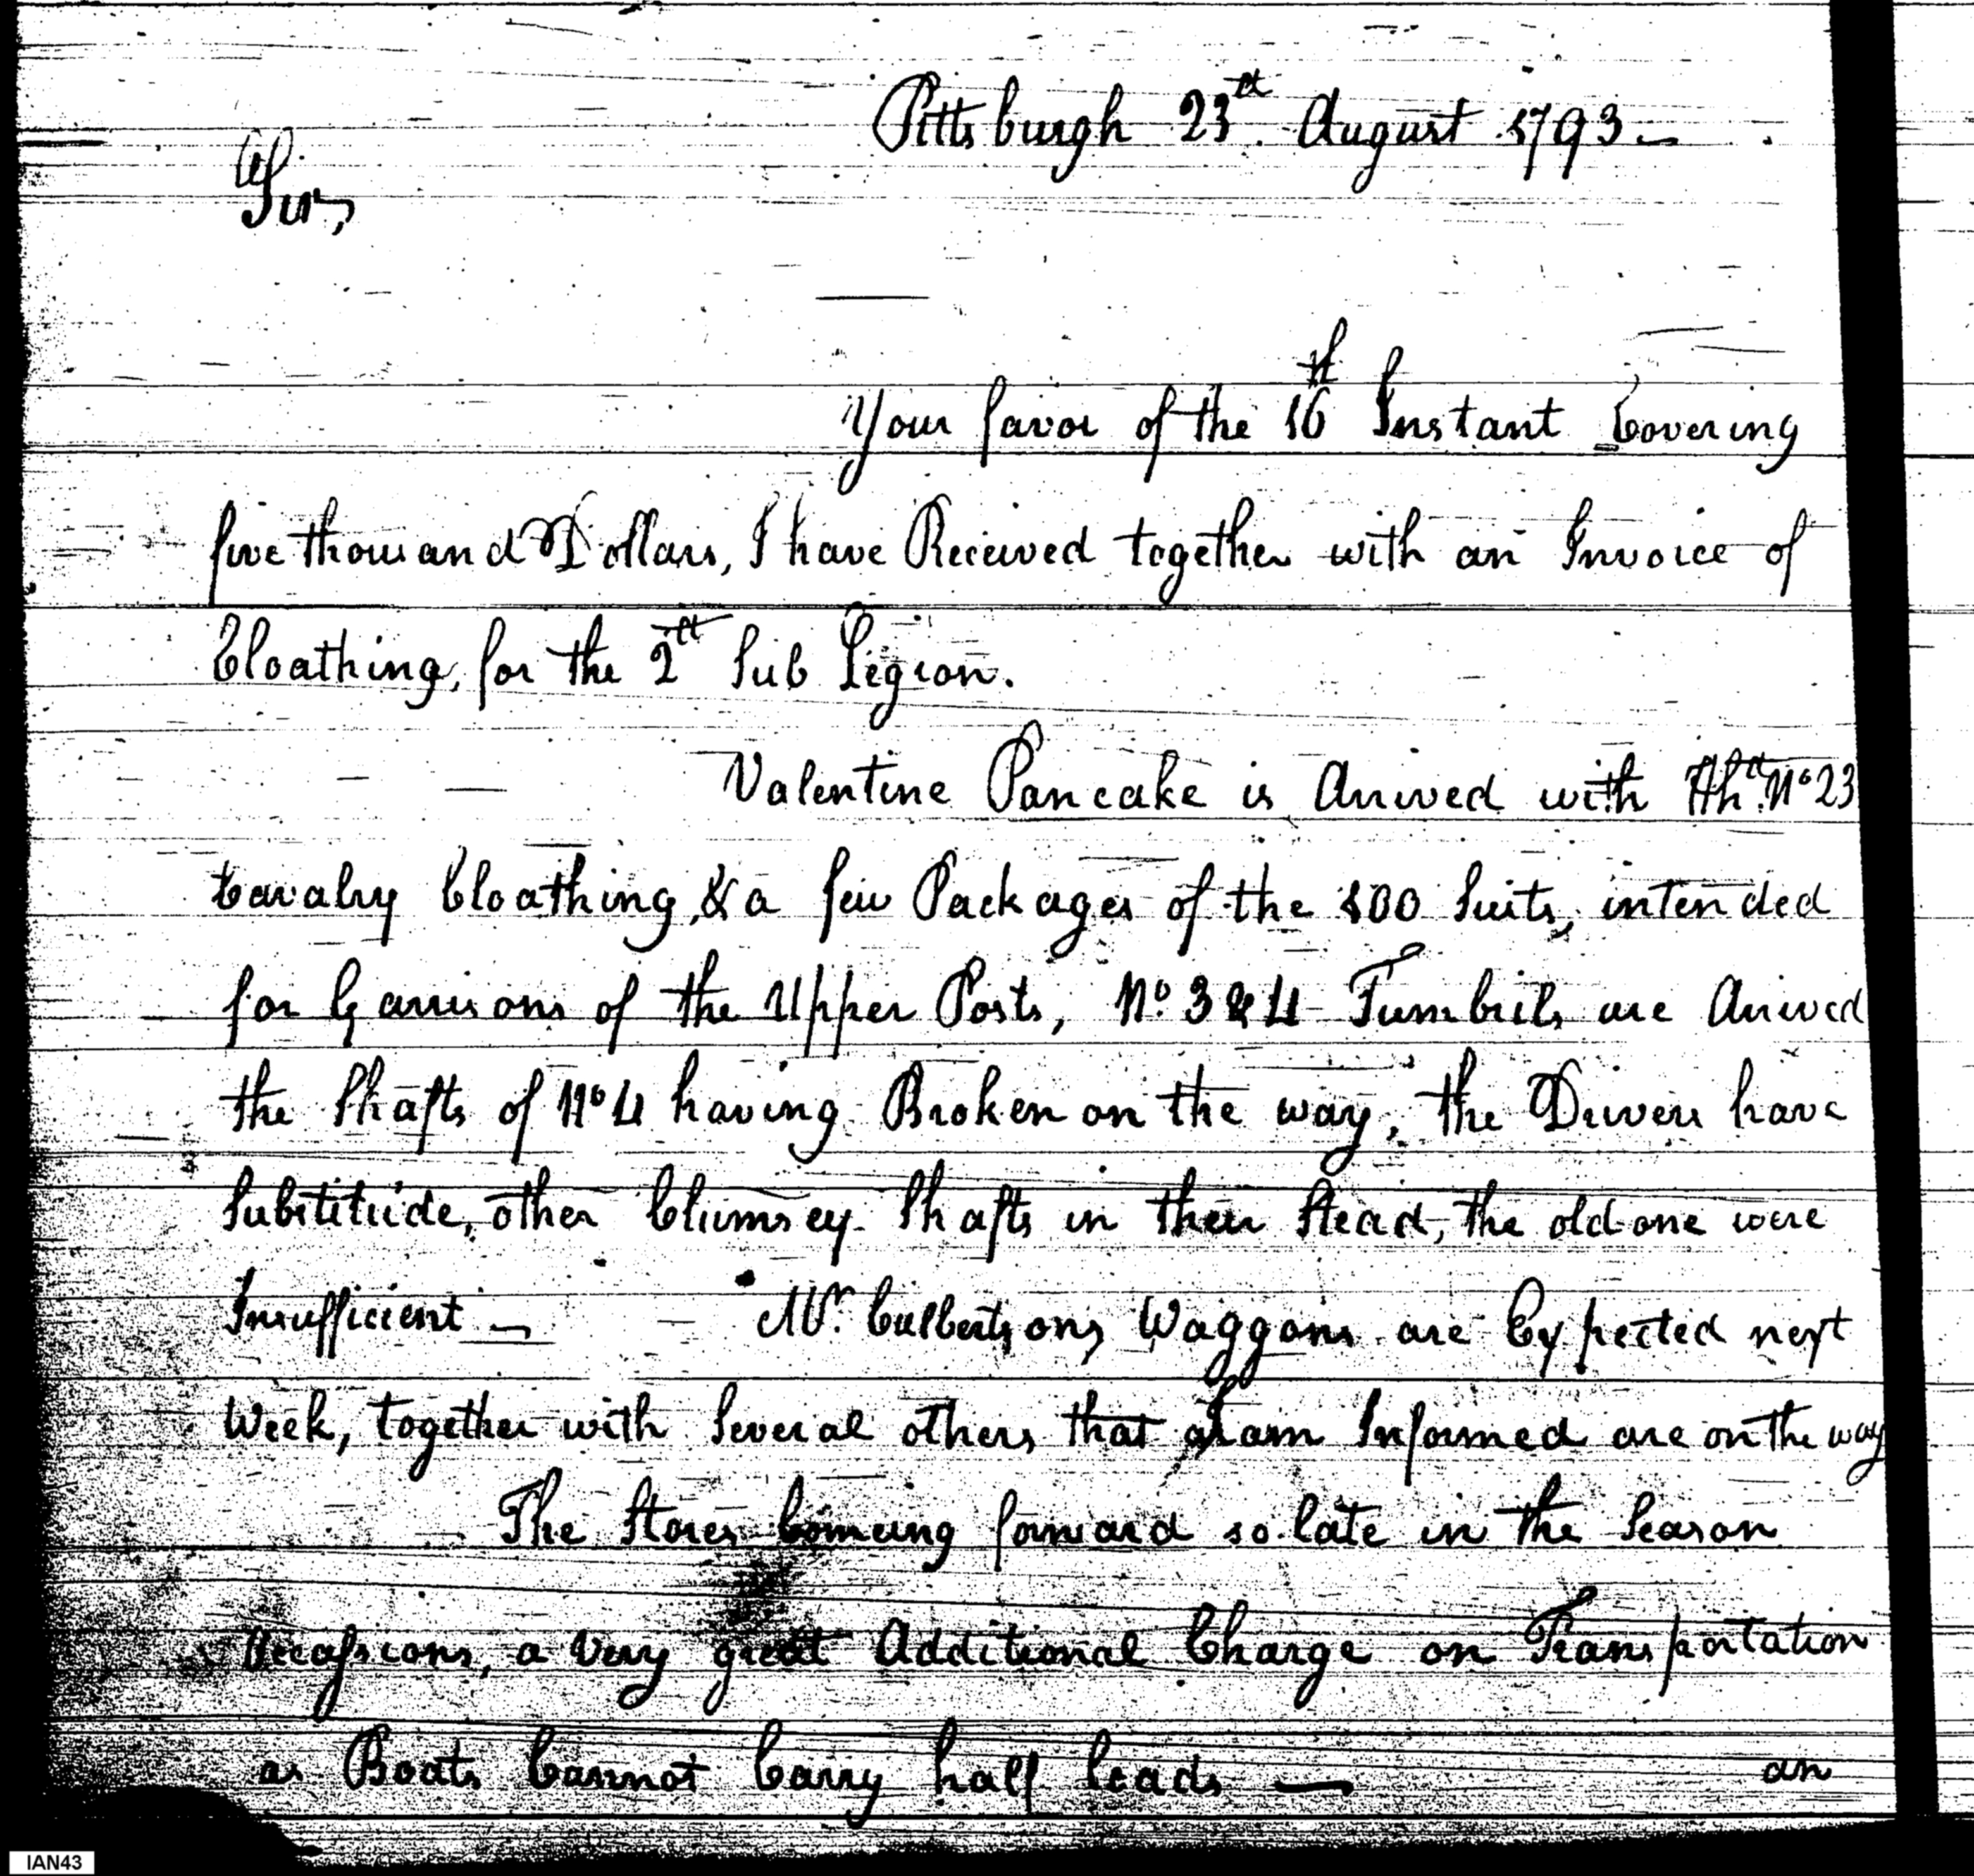 Pittsburgh 23d. August 1793 —
Sir,
Your favor of the 16th Instant Covering
five thousand Dollars, I have Received together with an Invoice of
Cloathing, for the 2d Sub Legion.
Valentine Pancake is Arrived with Hhd. No 23
Cavalry Cloathing, & a few Packages of the 800 Suits, intended
for Garrisons of the Upper Posts, No. 3 & 4 Tumbrils are Arived
the Shafts of No 4 having Broken on the way, the Drivers have
Substitude, other Clumsey Shafts in their Stead, the old one were
Insufficient — Mr. Culbertsons Waggons are Expected next
Week, together with Several others that I am Informed are on the way
The Stores Comeing forward so late in the Season
Occassions, a very great Additional Charge on Transportation
as Boats Cannot Carry half loads —
an
IAN43